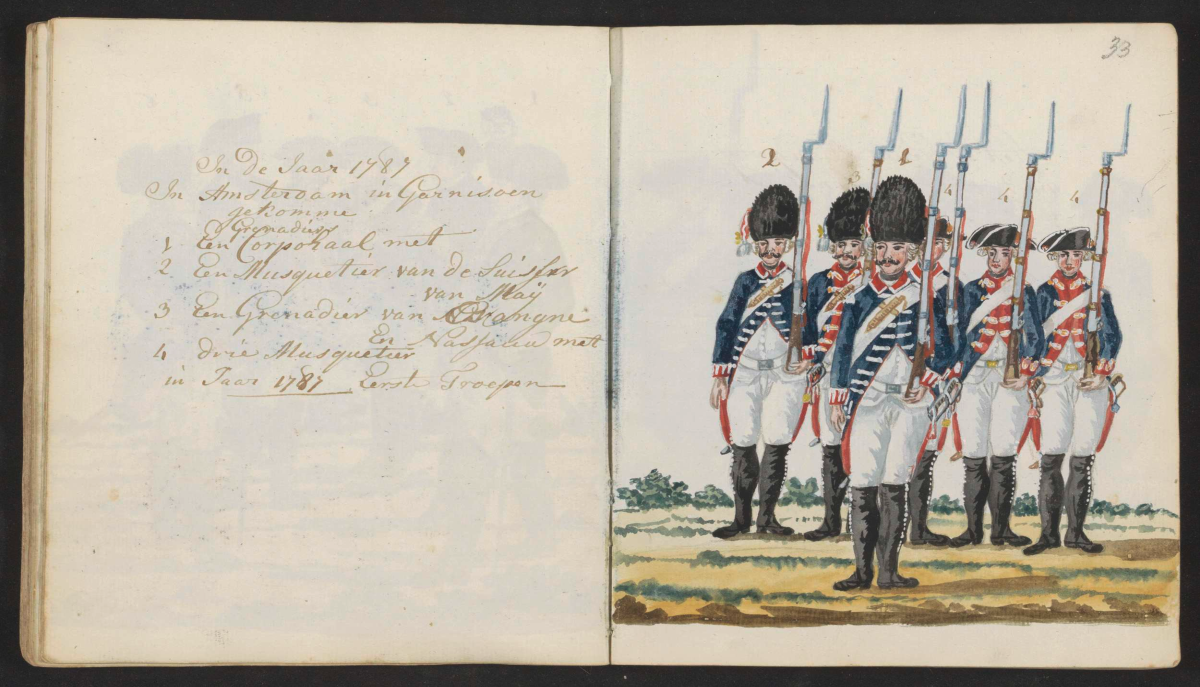 In de Jaar 1787
In Amsterdam in Garnisoen
gekomme
Grenadier
1 Een Corporaal met
2 En Musquetier van de Suisser
van Maÿ
3 Een Grenadier van Orangne
En Nassauw met
4 drie Musquetier
in Jaar 1787 Eerste Troepen
33
2
3
1
4
4
4